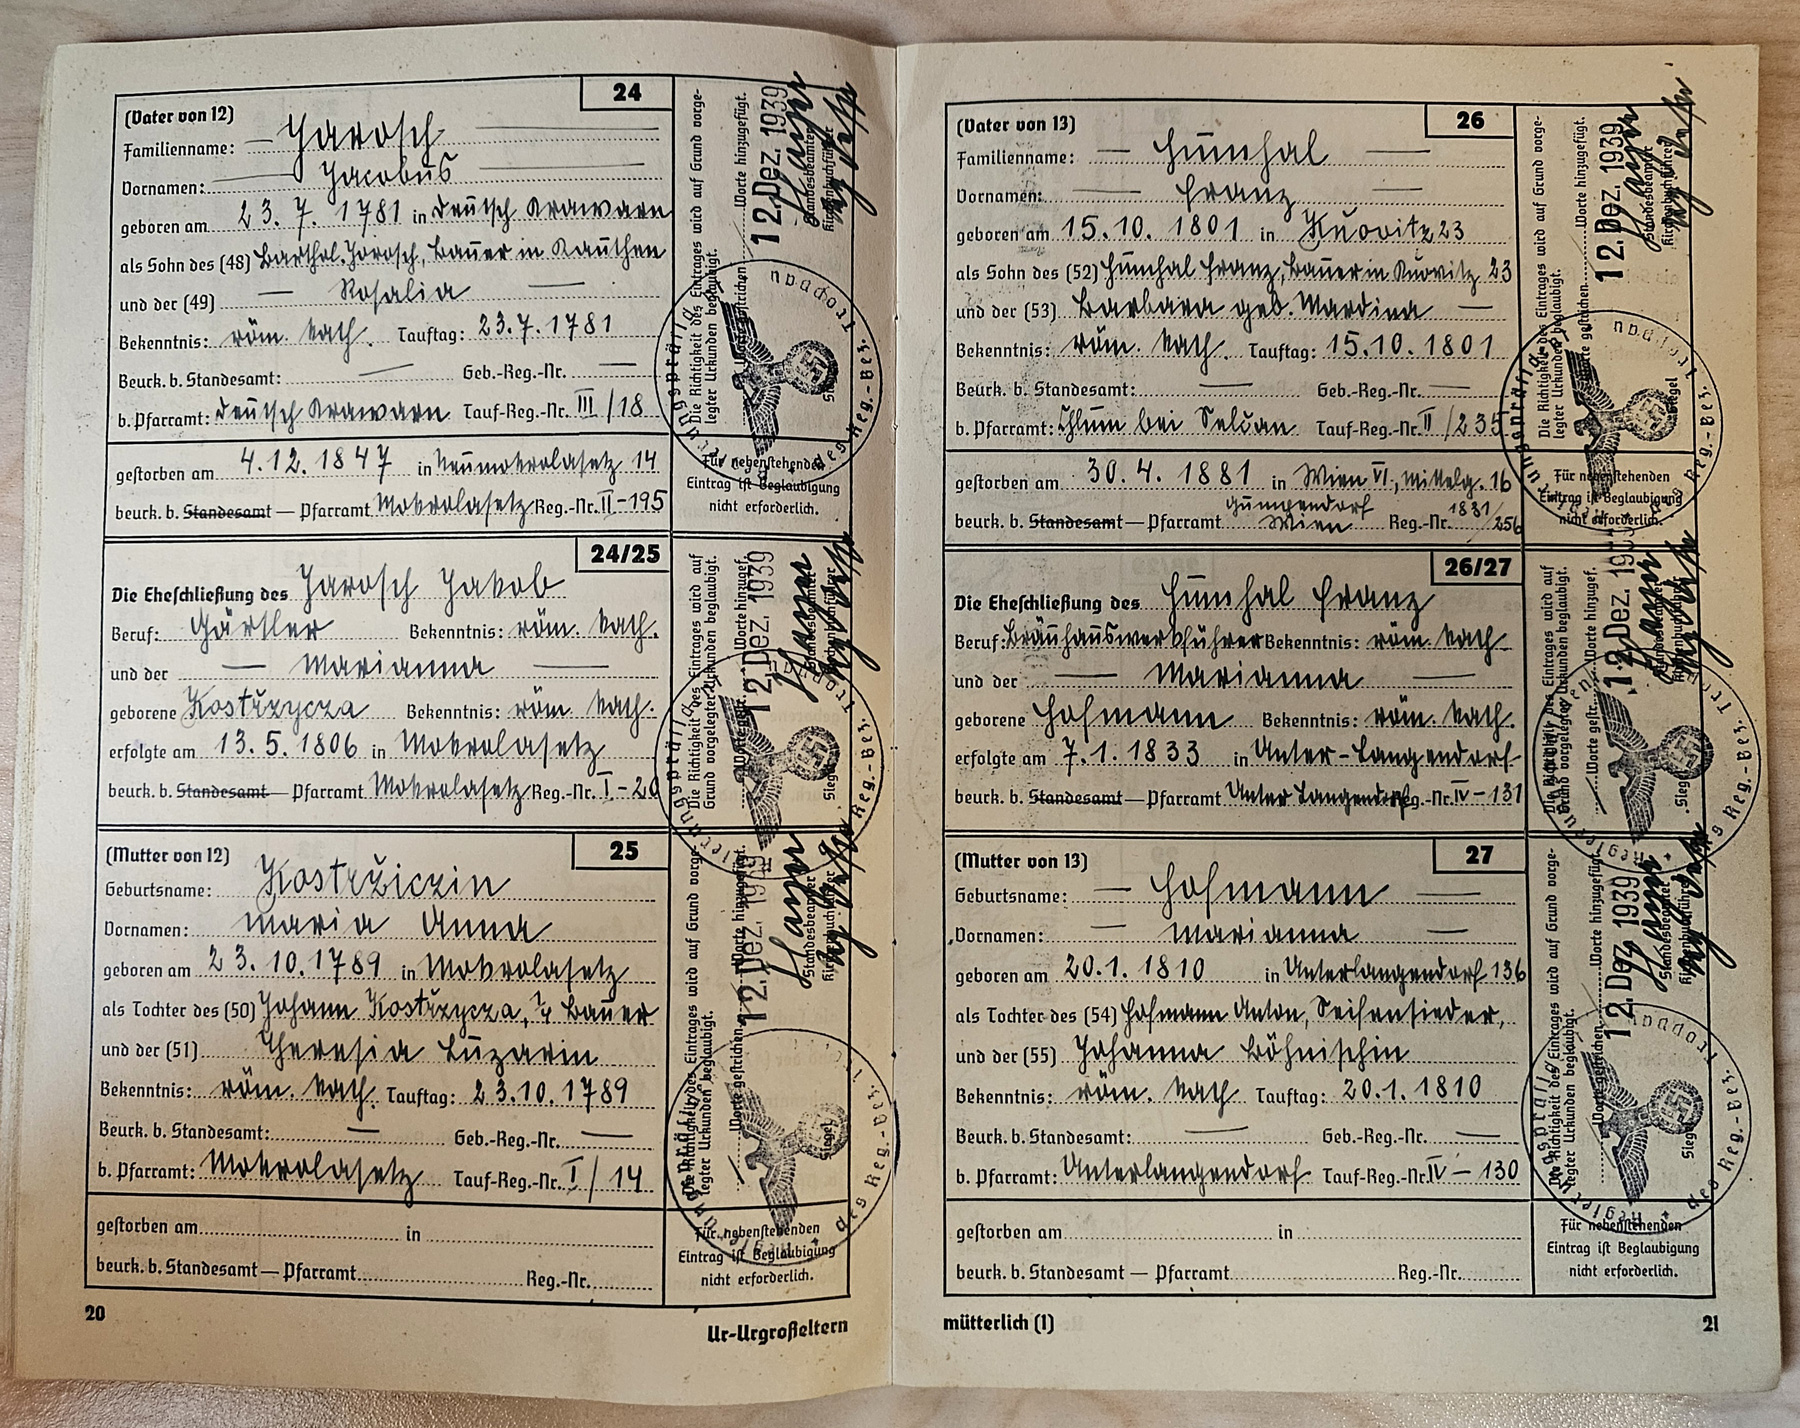 24
(Vater von 12)
Familienname: — Jarosch —
Vornamen: — Jacobus —
geboren am 23. 7. 1781 in Deutsch Krawarn
als Sohn des (48) Barthol. Jarosch, Bauer in Kauthen
und der (49) — Rosalia —
Bekenntnis: röm. kath. Tauftag: 23.7.1781
Beurk. b. Standesamt: — Geb.-Reg.-Nr. —
b. Pfarramt: Deutsch Krawarn Tauf-Reg.-Nr. III / 18
gestorben am 4.12.1847 in Neumokrolasetz 14
beurk. b. Standesamt — Pfarramt Mokrolasetz Reg.-Nr. II-195
Die Richtigkeit des Eintrages wird auf Grund vorge-
legter Urkunden beglaubigt.
Worte hinzugefügt.
Worte gestrichen.
12. Dez. 1939
Standesbeamter
Kirchenbuchführer
Siegel
Für nebenstehenden
Eintrag ist Beglaubigung
nicht erforderlich.
24/25
Die Eheschließung des Jarosch Jakob
Beruf: Gärtler Bekenntnis: röm. kath.
und der — Marianna —
geborene Kostržycza Bekenntnis: röm. kath.
erfolgte am 13. 5. 1806 in Mokrolasetz
beurk. b. Standesamt — Pfarramt Mokrolasetz Reg.-Nr. I-20
Die Richtigkeit des Eintrages wird auf
Grund vorgelegter Urkunden beglaubigt.
Worte hinzugef.
Worte gestr.
12. Dez. 1939
Standesbeamter
Kirchenbuchführer
Siegel
25
(Mutter von 12)
Geburtsname: Kostržiczin
Vornamen: Maria Anna
geboren am 23. 10. 1789 in Mokrolasetz
als Tochter des (50) Johann Kostržycza, Bauer
und der (51) Theresia Luzarin
Bekenntnis: röm. kath. Tauftag: 23.10.1789
Beurk. b. Standesamt: — Geb.-Reg.-Nr. —
b. Pfarramt: Mokrolasetz Tauf-Reg.-Nr. I / 14
gestorben am in
beurk. b. Standesamt — Pfarramt Reg.-Nr.
Die Richtigkeit des Eintrages wird auf Grund vorge-
legter Urkunden beglaubigt.
Worte hinzugefügt.
Worte gestrichen.
12. Dez. 1939
Standesbeamter
Kirchenbuchführer
Siegel
Für nebenstehenden
Eintrag ist Beglaubigung
nicht erforderlich.
20
Ur-Urgroßeltern
26
(Vater von 13)
Familienname: — Humhal —
Vornamen: — Franz —
geboren am 15.10. 1801 in Knovitz 23
als Sohn des (52) Humhal Franz, Bauer in Knovitz 23
und der (53) Barbara geb. Mardina —
Bekenntnis: röm. kath. Tauftag: 15.10.1801
Beurk. b. Standesamt: — Geb.-Reg.-Nr. —
b. Pfarramt: Chlum bei Selcan Tauf-Reg.-Nr. II / 235
gestorben am 30. 4. 1881 in Wien VI, Mittelg. 16
beurk. b. Standesamt — Pfarramt Gumpendorf Wien Reg.-Nr. 1881/256
Die Richtigkeit des Eintrages wird auf Grund vorge-
legter Urkunden beglaubigt.
Worte hinzugefügt.
Worte gestrichen.
12. Dez. 1939
Standesbeamter
Kirchenbuchführer
Siegel
Für nebenstehenden
Eintrag ist Beglaubigung
nicht erforderlich.
26/27
Die Eheschließung des Humhal Franz
Beruf: Bräuhauswerkführer Bekenntnis: röm. kath.
und der — Marianna —
geborene Hofmann Bekenntnis: röm. kath.
erfolgte am 7. 1. 1833 in Unter-Langendorf
beurk. b. Standesamt — Pfarramt Unter Langendorf Reg.-Nr. IV-131
Die Richtigkeit des Eintrages wird auf
Grund vorgelegter Urkunden beglaubigt.
Worte hinzugef.
Worte gestr.
12. Dez. 1939
Standesbeamter
Kirchenbuchführer
Siegel
27
(Mutter von 13)
Geburtsname: — Hofmann —
Vornamen: — Marianna —
geboren am 20.1. 1810 in Unterlangendorf 136
als Tochter des (54) Hofmann Anton, Seifensieder,
und der (55) Johanna Böhnischin
Bekenntnis: röm. kath. Tauftag: 20.1. 1810
Beurk. b. Standesamt: — Geb.-Reg.-Nr. —
b. Pfarramt: Unterlangendorf Tauf-Reg.-Nr. IV-130
gestorben am in
beurk. b. Standesamt — Pfarramt Reg.-Nr.
Die Richtigkeit des Eintrages wird auf Grund vorge-
legter Urkunden beglaubigt.
Worte hinzugefügt.
Worte gestrichen.
12. Dez. 1939
Standesbeamter
Kirchenbuchführer
Siegel
Für nebenstehenden
Eintrag ist Beglaubigung
nicht erforderlich.
mütterlich (1)
21